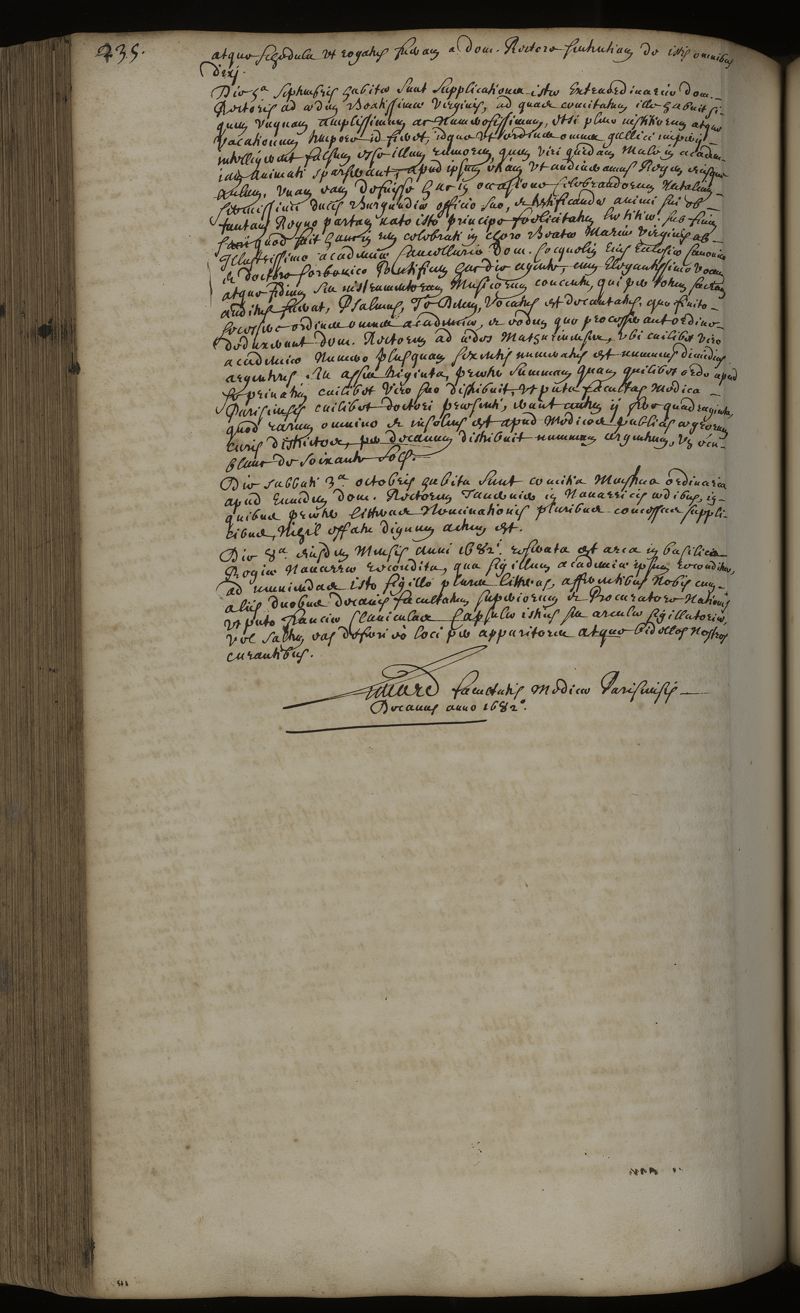 235.
atque schedula ut rogatus fueram a Dom. Rectore sententiam de istis omnibus
dixi.
Die 5a Septembris habitae sunt supplicationes istae extraordinariae Dom.
Rectoris ad aedem Beatissimae Virginis, ad quas comitatum ille habuit si
quem unquam amplissimum ac numerosissimum, etsi plane in atque
vacationum tempore id fieret, idque ut ordines omnes gallici imperij
intelligerent falsum esse illum rumorem quem viri quidam male in academ-
iam animati sparserant, apud ipsum etiam ut audieramus Regem eiusque
aulam, unam eam defuisse hac in occasione celebrandorum Natalium
Serenissimi Ducis Burgundiae officio suo, et testificandae animi sui ob
tantam Regno partam nato isto principe foelicitatem laetitiae. sub finem
sacri quod fuit hanc in rem celebrati in choro Beatae Mariae Virginis ab
Illustrissimo academiae Cancellario Dom. Cocquelin eius Ecclesiae Canonico
et doctore Sorbonico Pontificem hac die agente, cum elegantissimo vocum
atque fidium seu instrumentorum Musicorum concentu, qui per totum sacrum
auditus fuerat, Psalmus, Te Deum, vocatus est decantatus, quo finito
 ordines omnes academiae, et eodem quo processerant ordine
deduxerunt Dom. Rectorem ad aedes Mazarinaeas, ubi cuilibet viro
academico numero plusquam sexcentis numeratus est nummus dimidius
argenteus. seu asses triginta, praeter summam quam quilibet ordo apud
se privatim cuilibet viro suo distribuit, ut puta facultas Medica
Parisiensis cuilibet doctori praesenti, erant autem ij fere quadraginta,
quod rarum omnino et insolens est apud Medicos publicis aegrorum
curis districtos, per decanum distribuit nummum argenteum, un écu
blanc de soixante sols.
Die sabbati 3a octobris habita sunt comitia menstrua ordinaria
apud eumdem Dom. Rectorem Tavernier in Navarricis aedibus, in
quibus praeter litteras Nominationis pluribus concessas suppli-
cibus, Nihil effatu dignum actum est.
Die 8a eiusdem Mensis anni 1682i. reserata est arca in basilica
Regiae Navarrae recondita, qua sigillum academiae ipsum reconditur,
ad muniendas isto sigillo plures litteras, afferentibus nobis cum
aliis duobus decanis facultatum superiorum et Procuratore Nationis
ut puto Franciae claviculas capsulae istius seu arculae sigillatoriae,
vel saltem eas deferri eo loci per apparitores atque bidellos nostros
curantibus.
 facultatis Medicae Parisiensis
Decanus anno 1682o.